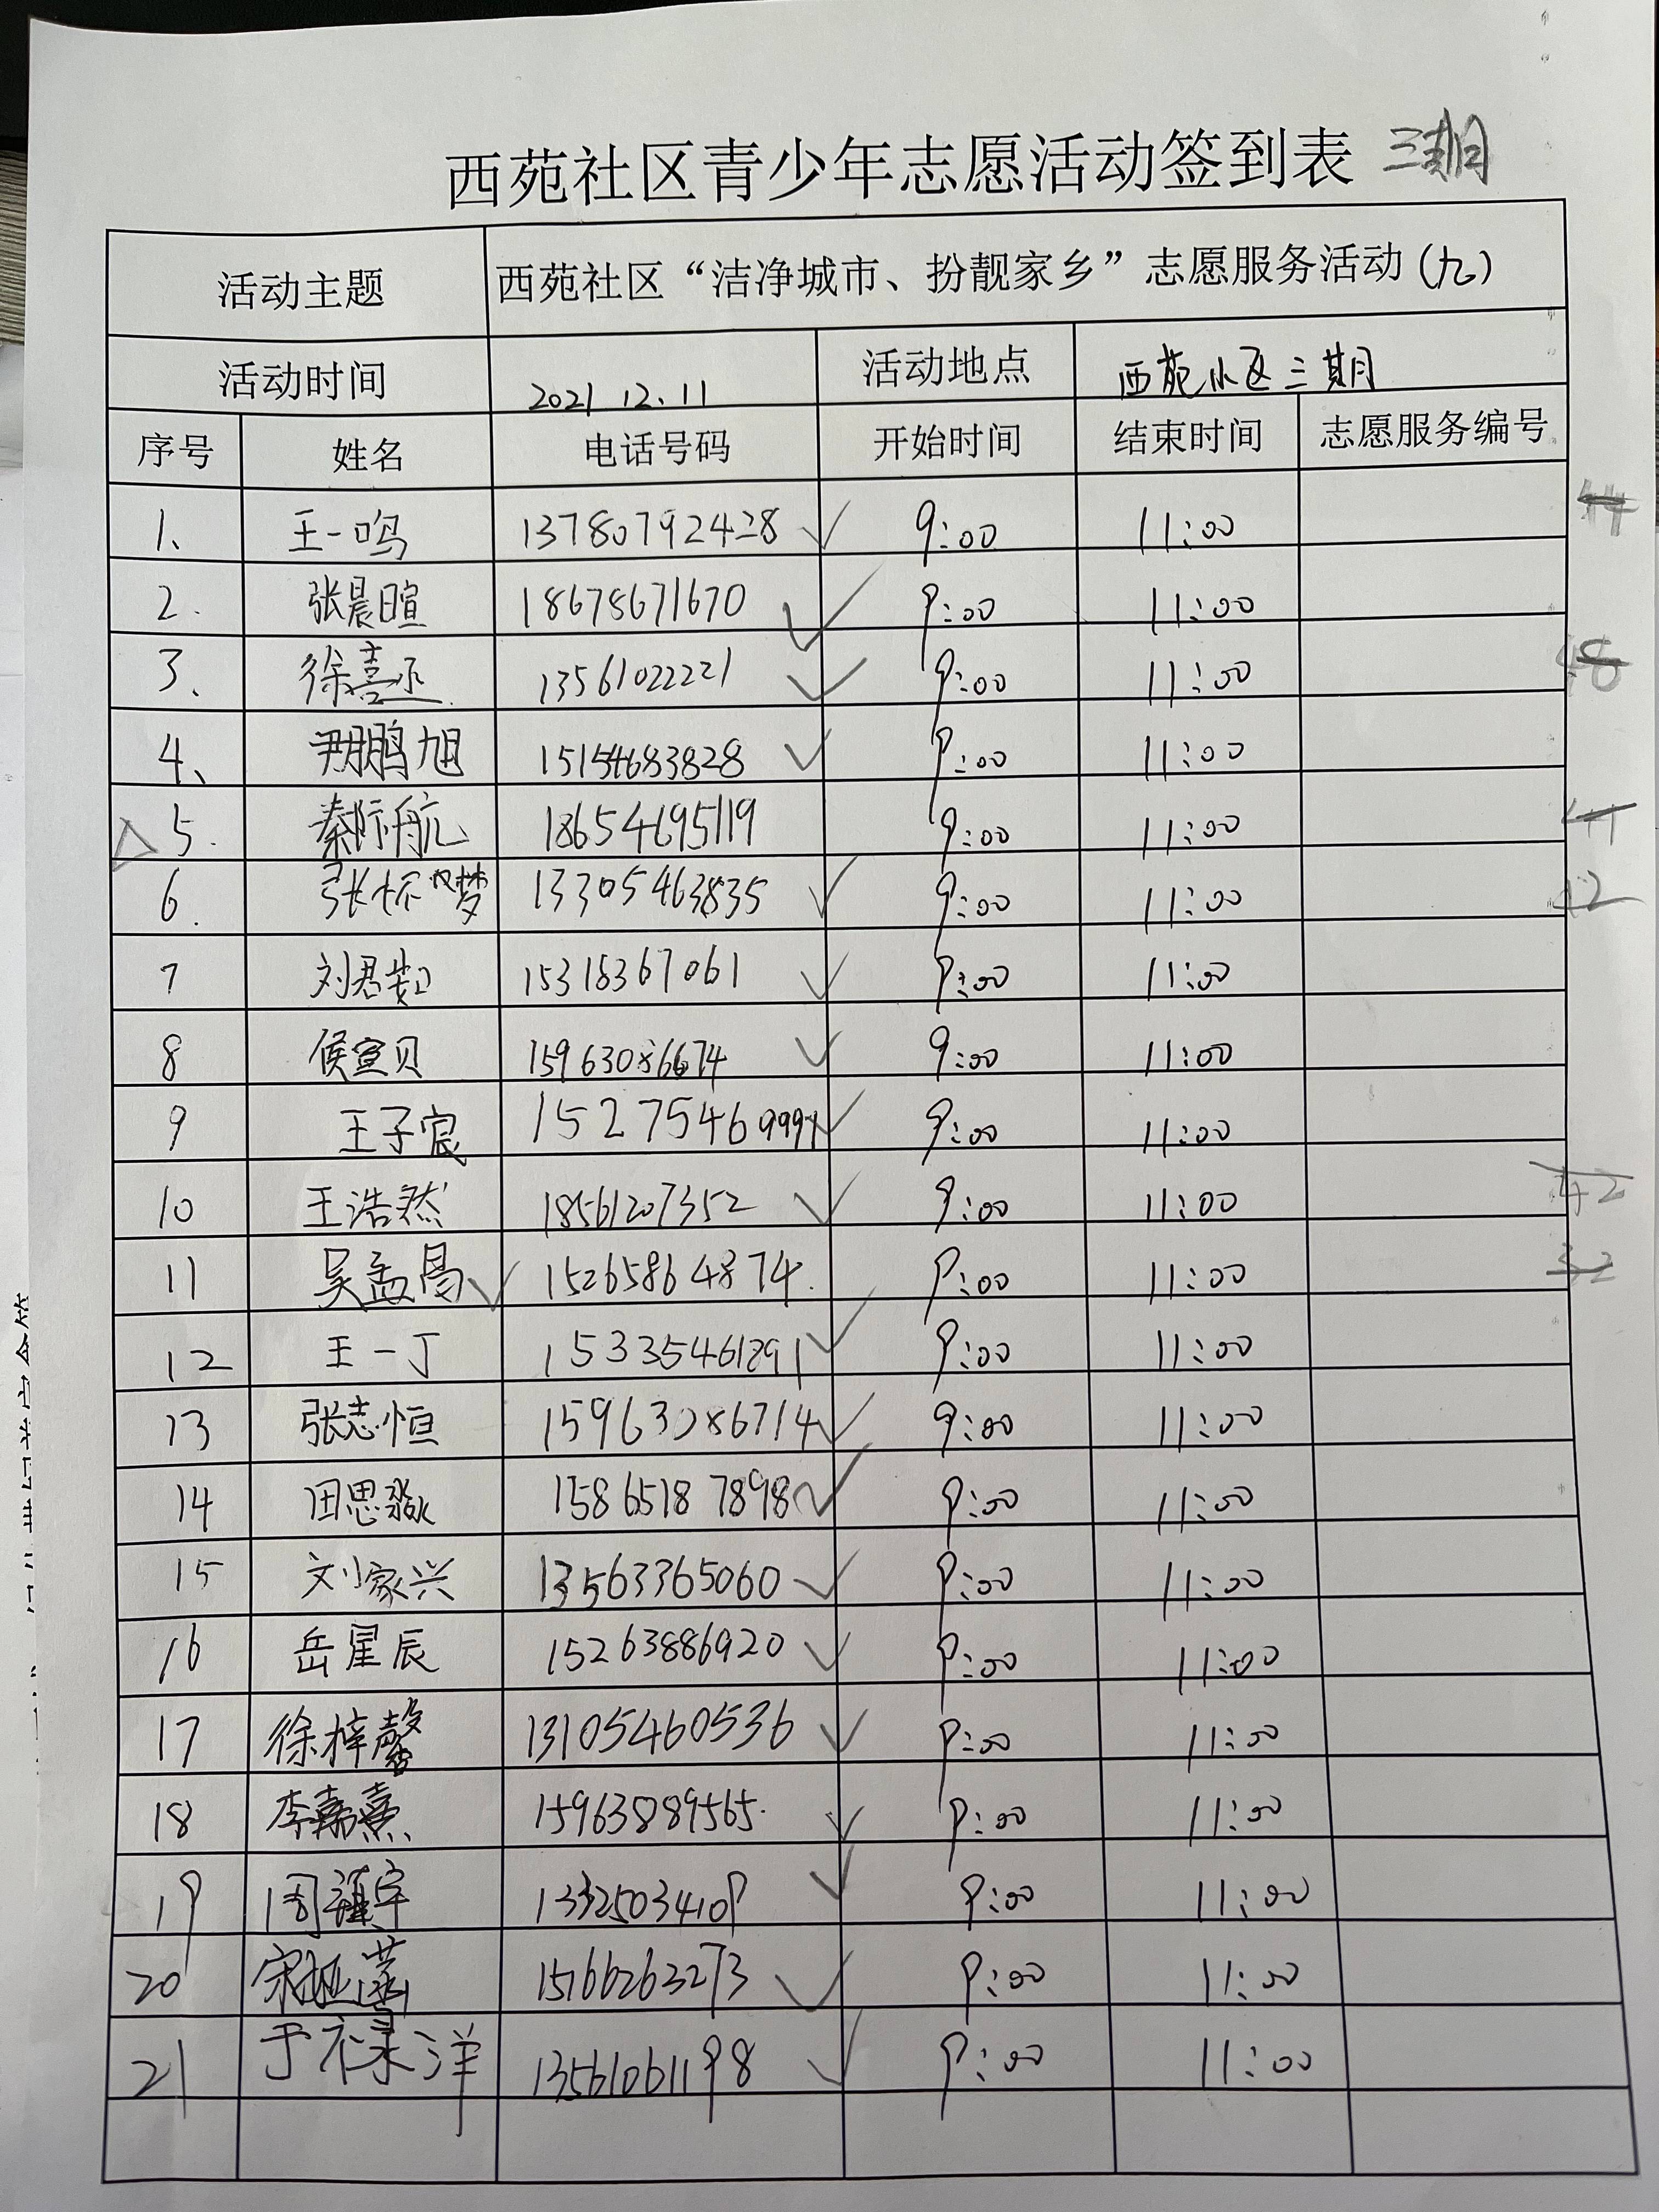 西苑社区青少年志愿活动签到表 三期
活动主题 西苑社区“洁净城市、扮靓家乡”志愿服务活动(九)
活动时间 2021.12.11 活动地点 西苑小区三期
序号 姓名 电话号码 开始时间 结束时间 志愿服务编号
1、 王一鸣 13780792428 ✓ 9:00 11:00
2. 张晨暄 18678671670 ✓ 9:00 11:00
3、 徐熹丞 13561022221 ✓ 9:00 11:00
4、 尹鹏旭 15154683828 ✓ 9:00 11:00
△ 5. 秦际航 18654695119 9:00 11:00
6. 张怀梦 13305463835 ✓ 9:00 11:00
7 刘君如 15318367061 ✓ 9:00 11:00
8 侯宣贝 15963086674 ✓ 9:00 11:00
9 王子宸 15275469991 ✓ 9:00 11:00
10 王浩然 18561207352 ✓ 9:00 11:00 42
11 吴孟昌 ✓ 15265864874. 9:00 11:00 32
12 王一丁 15335461291 ✓ 9:00 11:00
13 张志恒 15963086714 ✓ 9:00 11:00
14 田思淼 15865187898 ✓ 9:00 11:00
15 刘家兴 13563365060 ✓ 9:00 11:00
16 岳星辰 15263886920 ✓ 9:00 11:00
17 徐梓馨 13105460536 ✓ 9:00 11:00
18 李嘉熹 15963889565. ✓ 9:00 11:00
19 周镇宇 13325034109 ✓ 9:00 11:00
20 宋 15766263273 ✓ 9:00 11:00
21 于禄洋 13561061198 ✓ 9:00 11:00